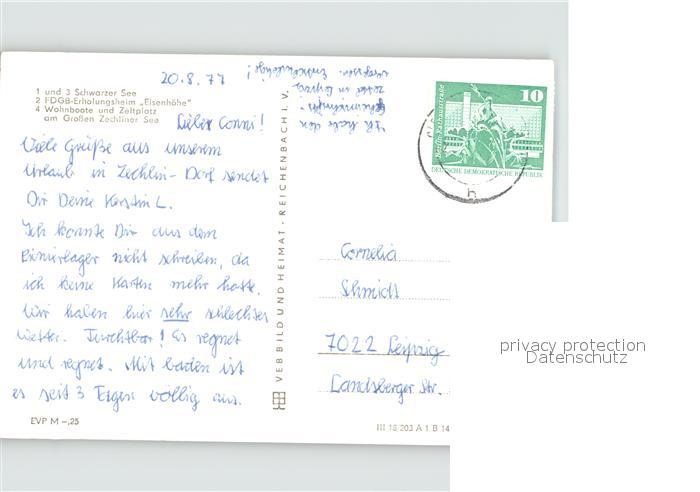 1 und 3 Schwarzer See
2 FDGB-Erholungsheim „Eisenhöhe"
4 Wohnboote und Zeltplatz
am Großen Zechliner See
20.8.77
Lieber Conni!
Viele Grüße aus unserem
Urlaub in Zechlin-Dorf sendet
Dir Deine Kerstin L.
Ich konnte Dir aus dem
Pionierlager nicht schreiben, da
ich keine Karten mehr hatte.
Wir haben hier sehr schlechtes
Wetter. Furchtbar! Es regnet
und regnet. Mit baden ist
es seit 3 Tagen völlig aus.
Ich hab den
zettel in Leipzig
vergessen. Entschuldige!
EVP M -,25
VEB BILD UND HEIMAT · REICHENBACH I. V.
Berlin, Rathausstraße
10
DEUTSCHE DEMOKRATISCHE REPUBLIK
h
Cornelia
Schmidt
7022 Leipzig
Landsberger Str.
III 18/203 A 1 B 14
privacy protection
Datenschutz